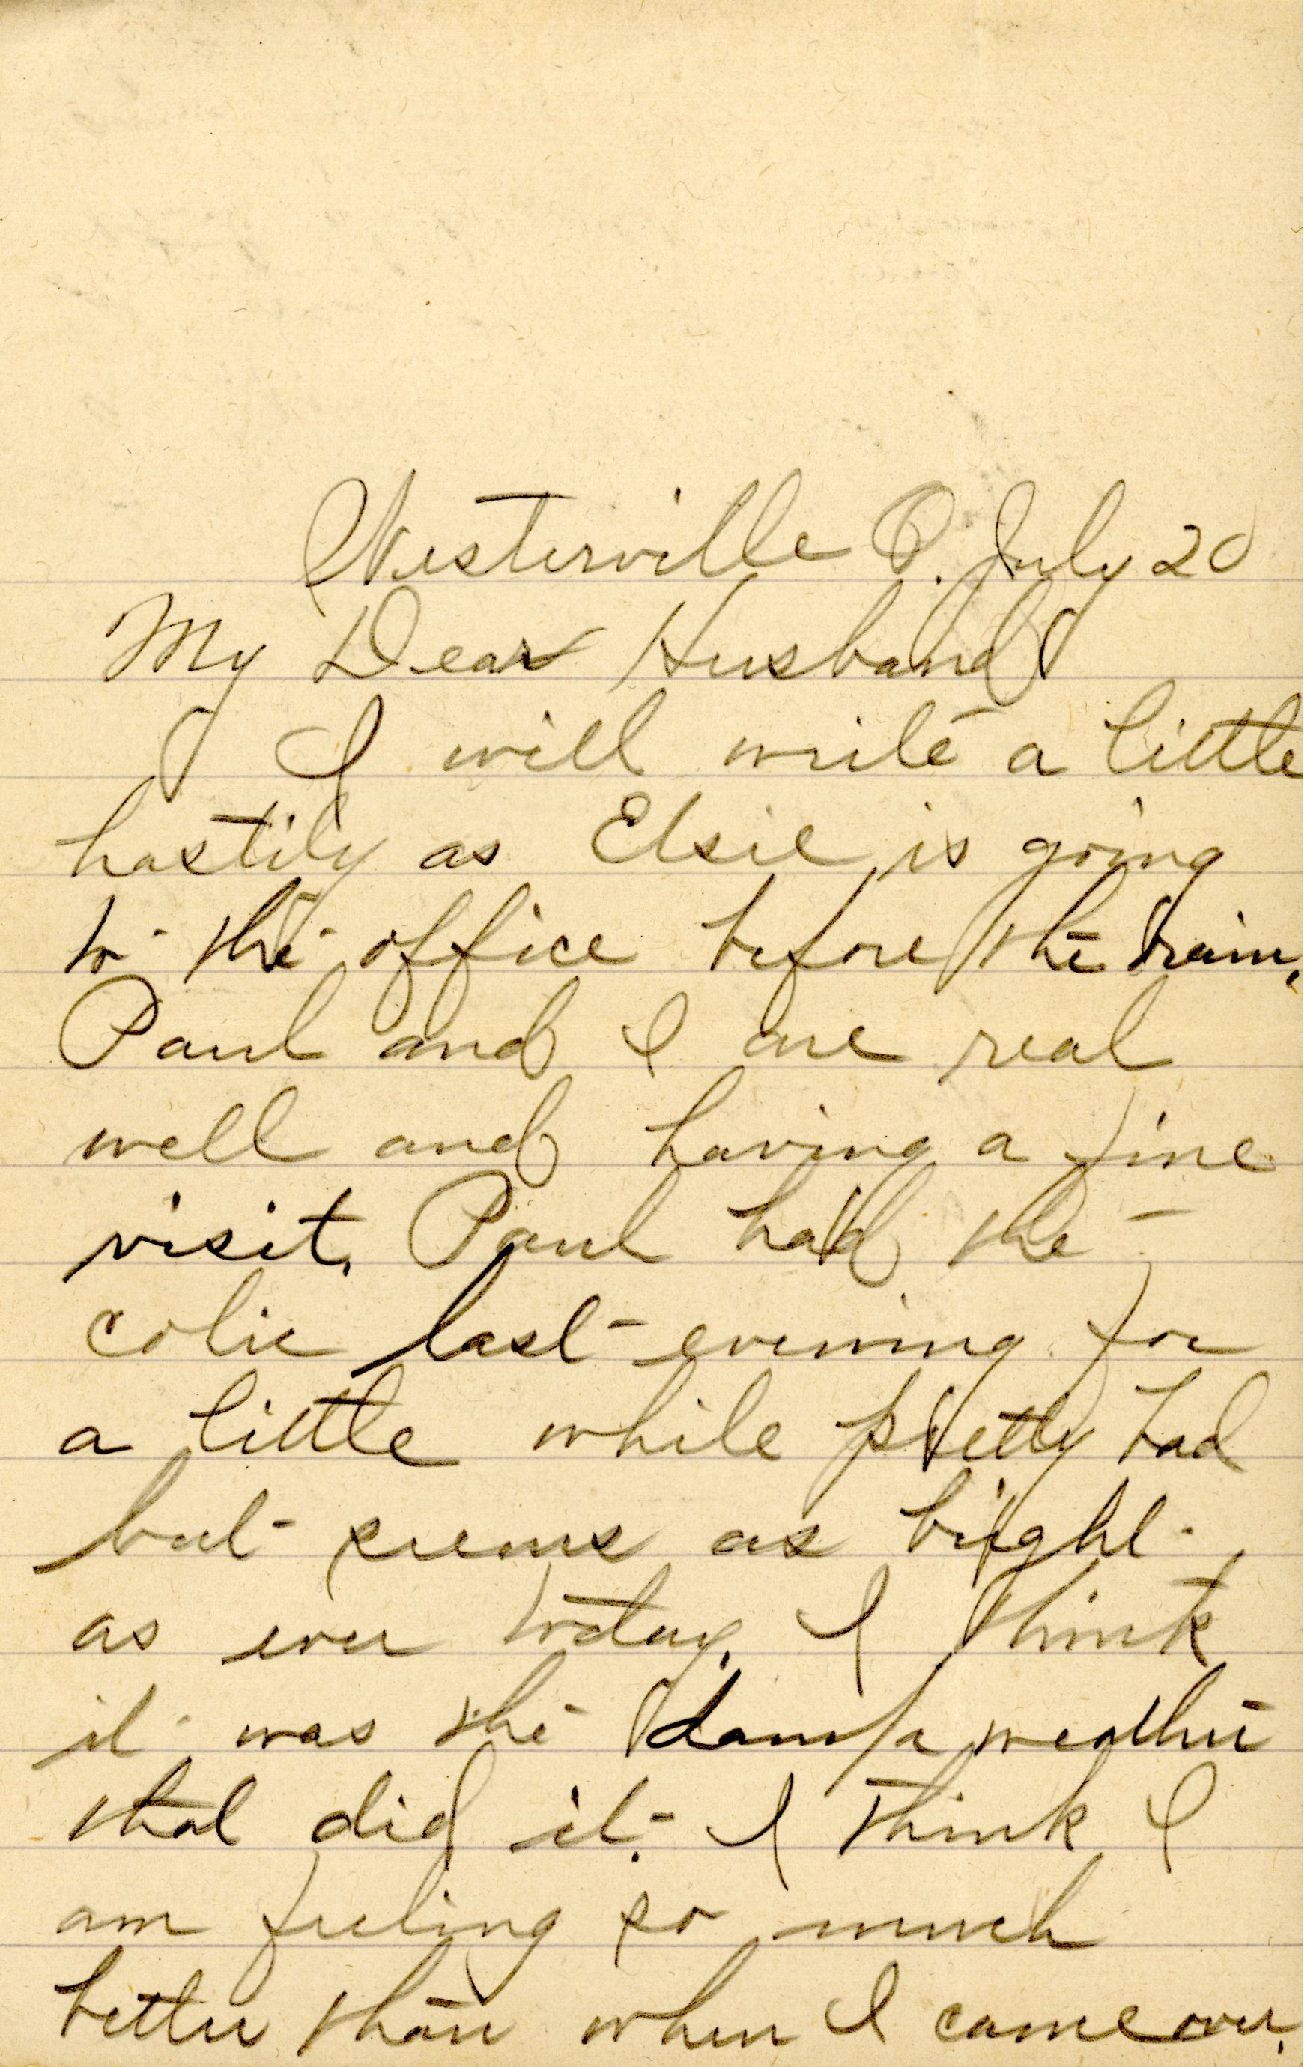 Westerville O. July 20
My Dear Husband
I will write a little
hastily as Elsie is going
to the office before the train.
Paul and I are real
well and having a fine
visit. Paul had the
colic last evening for
a little while pretty bad
but seems as bright
as ever today. I think
it was the damp weather
that did it. I think I
am feeling so much
better than when I came over.